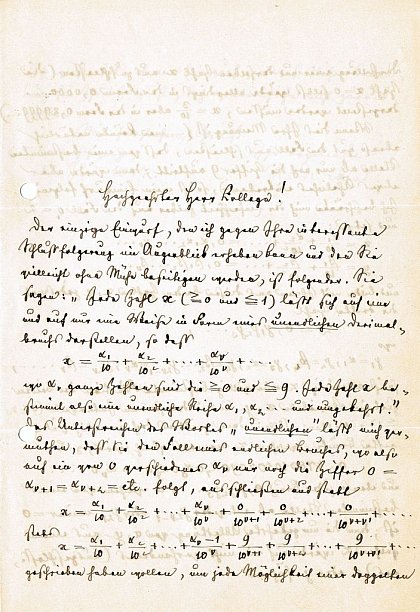 Hochgeehrter Herr College!
Der einzige Einwurf, den ich gegen Ihre interessante
Schlußfolgerung im Augenblick erheben kann und den Sie
vielleicht ohne Mühe beseitigen werden, ist folgender. Sie
sagen: „Jede Zahl x (≧ 0 und ≦ 1) läßt sich auf eine
und auf nur eine Weise in Form eines unendlichen Decimal-
bruchs darstellen, so dass
x = α₁/10 + α₂/10² + ··· + αᵥ/10ᵛ + ···
wo αᵥ ganze Zahlen sind die ≧ 0 und ≦ 9. Jede Zahl x be-
stimmt also eine unendliche Reihe α₁, α₂ ··· und umgekehrt."
Das Unterstreichen des Wortes „unendlichen" läßt mich ver-
muthen, dass Sie den Fall eines endlichen Bruches, wo also
auf ein von 0 verschiedenes αᵥ nur noch die Ziffer 0 =
αᵥ₊₁ = αᵥ₊₂ = etc. folgt, ausschließen und statt
x = α₁/10 + α₂/10² + ··· + αᵥ/10ᵛ + 0/10ᵛ⁺¹ + 0/10ᵛ⁺² + ··· + 0/10ᵛ⁺ᵛ' + ···
stets
x = α₁/10 + α₂/10² + ··· + αᵥ-1/10ᵛ + 9/10ᵛ⁺¹ + 9/10ᵛ⁺² + ··· + 9/10ᵛ⁺ᵛ' + ···
geschrieben haben wollen, um jede Möglichkeit einer doppelten